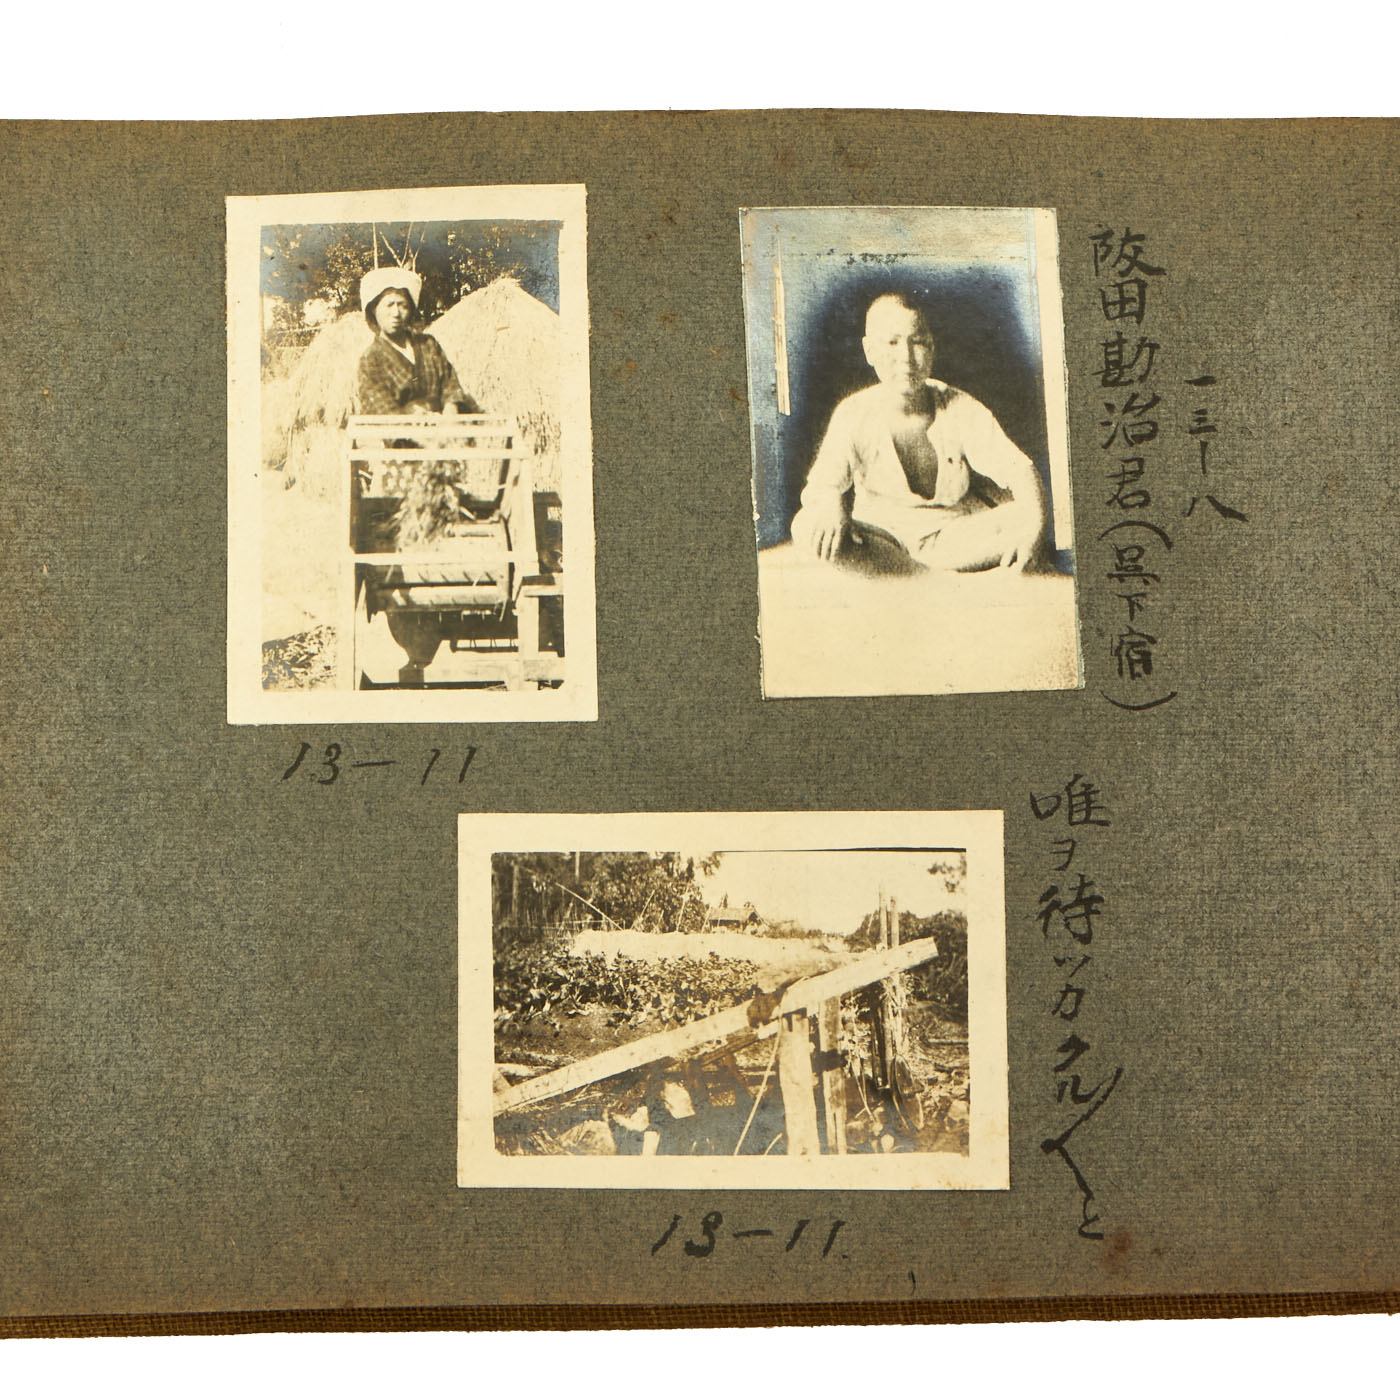 一三ー八
阪田勘治君（呉下宿）
唯ヲ待ツカクルノ〱と
13－11
13－11.